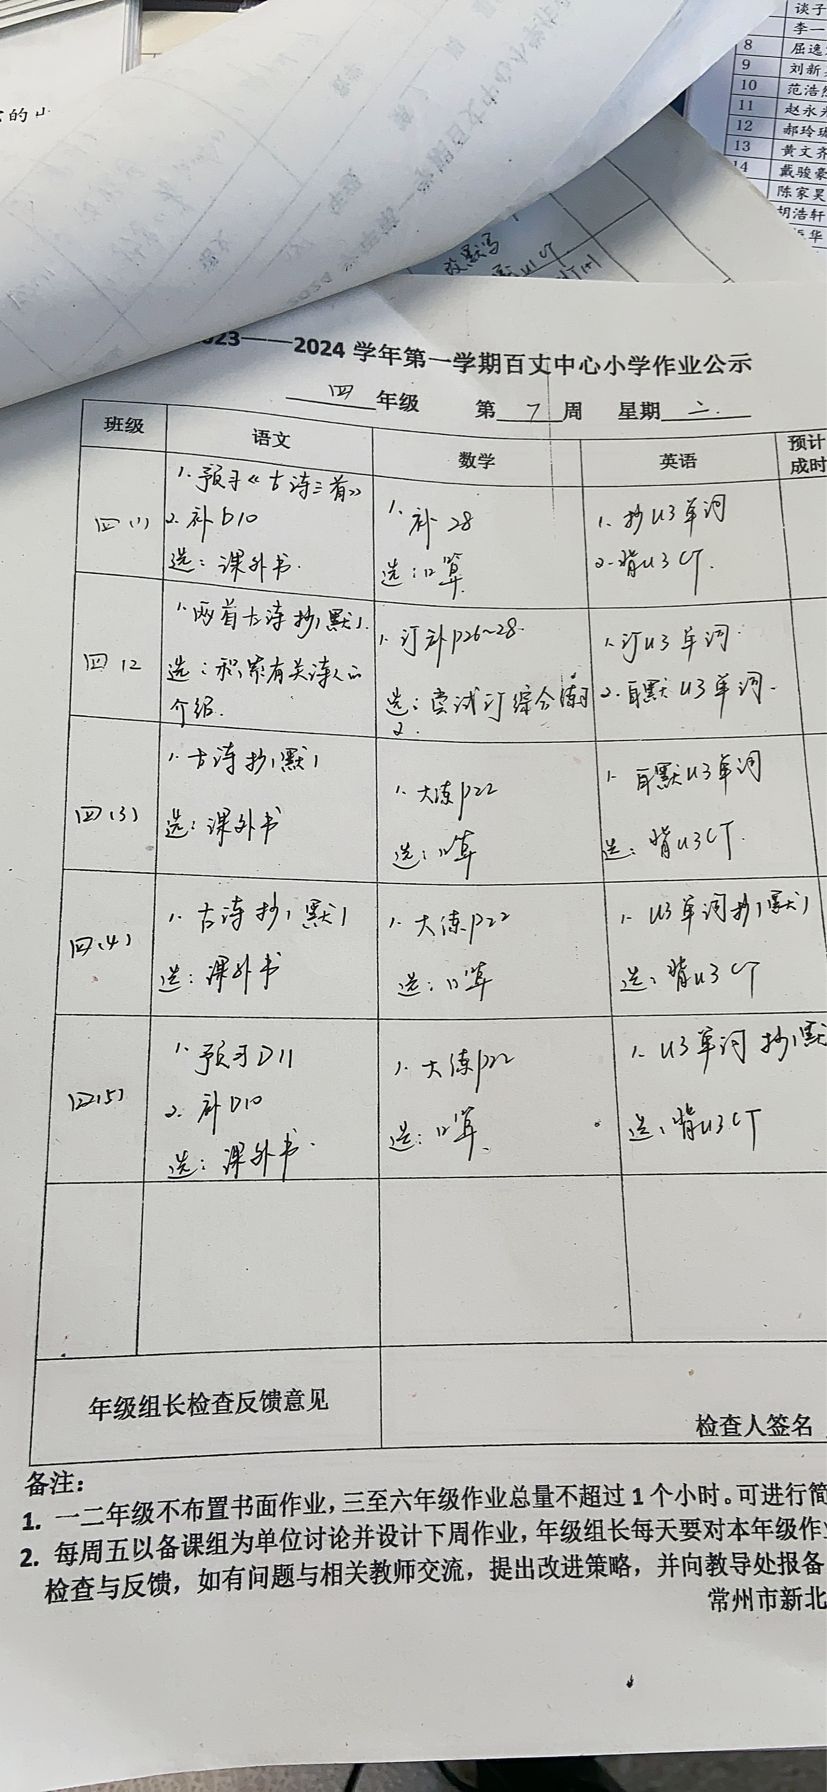 谈子
李一
8 屈逸
9 刘新
10 范浩然
11 赵永
12 郝玲
13 黄文齐
14 戴骏豪
陈家昊
胡浩轩
华
的小
改默写
023——2024 学年第一学期百丈中心小学作业公示
四 年级 第 7 周 星期 二.
班级 语文 数学 英语 预计
成时
四(1)
1. 预习《古诗三首》
2. 补D10
选：课外书.
1. 补 28
选：口算.
1. 抄U3单词
2. 背U3 CT.
四 12
1. 两首古诗抄1默1.
选：积累有关诗人的
介绍.
1. 订补P26~28.
选：尝试订综合练习
2.
1. 订U3 单词.
2. 自默 U3 单词.
四(3)
1. 古诗抄1默1
选：课外书
1. 大练P22
选：口算
1. 自默U3单词
选：背U3CT.
四(4)
1. 古诗抄1默1
选：课外书
1. 大练P22
选：口算
1. U3单词抄1默1
选：背U3 CT
四(5)
1. 预习D11
2. 补D10
选：课外书.
1. 大练P22
选：口算.
1. U3单词 抄1默
选：背U3CT
年级组长检查反馈意见
检查人签名
备注：
1. 一二年级不布置书面作业，三至六年级作业总量不超过 1 个小时。可进行简
2. 每周五以备课组为单位讨论并设计下周作业，年级组长每天要对本年级作业
检查与反馈，如有问题与相关教师交流，提出改进策略，并向教导处报备
常州市新北